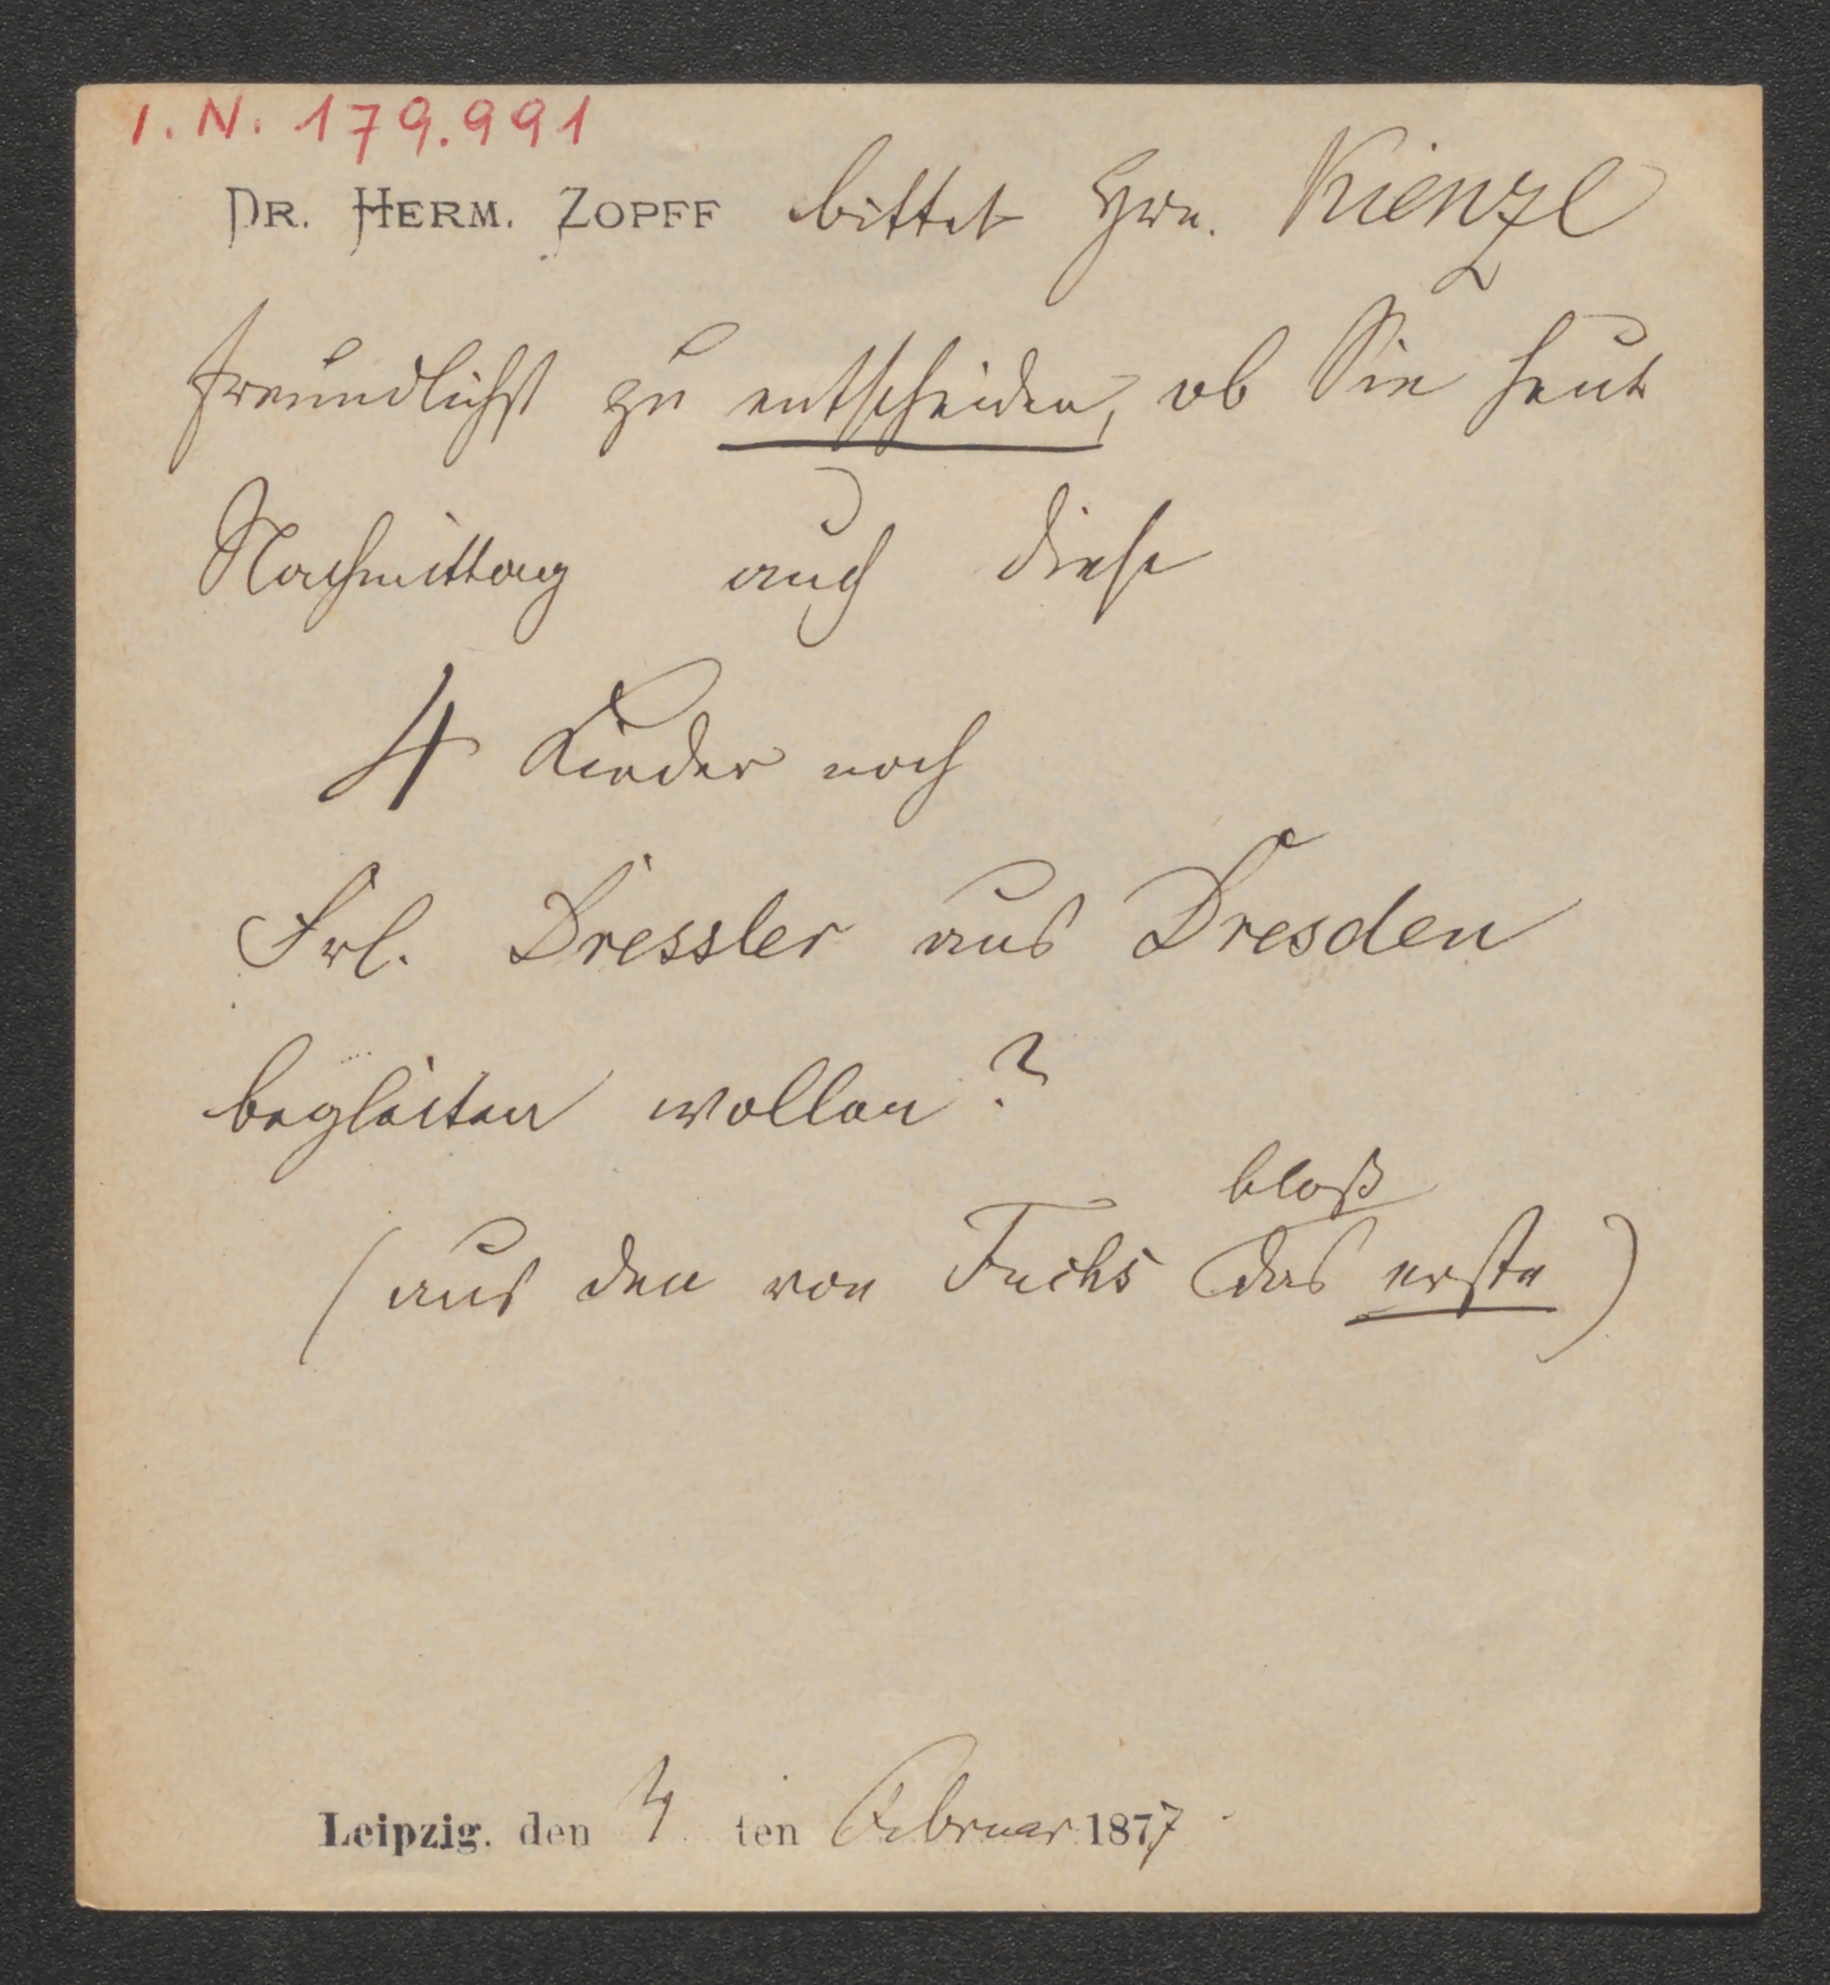 I. N. 179.991
DR. HERM. ZOPFF bittet Hrn. Kienzl
freundlichst zu entscheiden, ob Sie heut
Nachmittag auch diese
4 Lieder noch
Frl. Dressler aus Dresden
begleiten wollen?
bloß
(aus den von Fuchs das erste)
Leipzig, den 4 ten Februar 1877